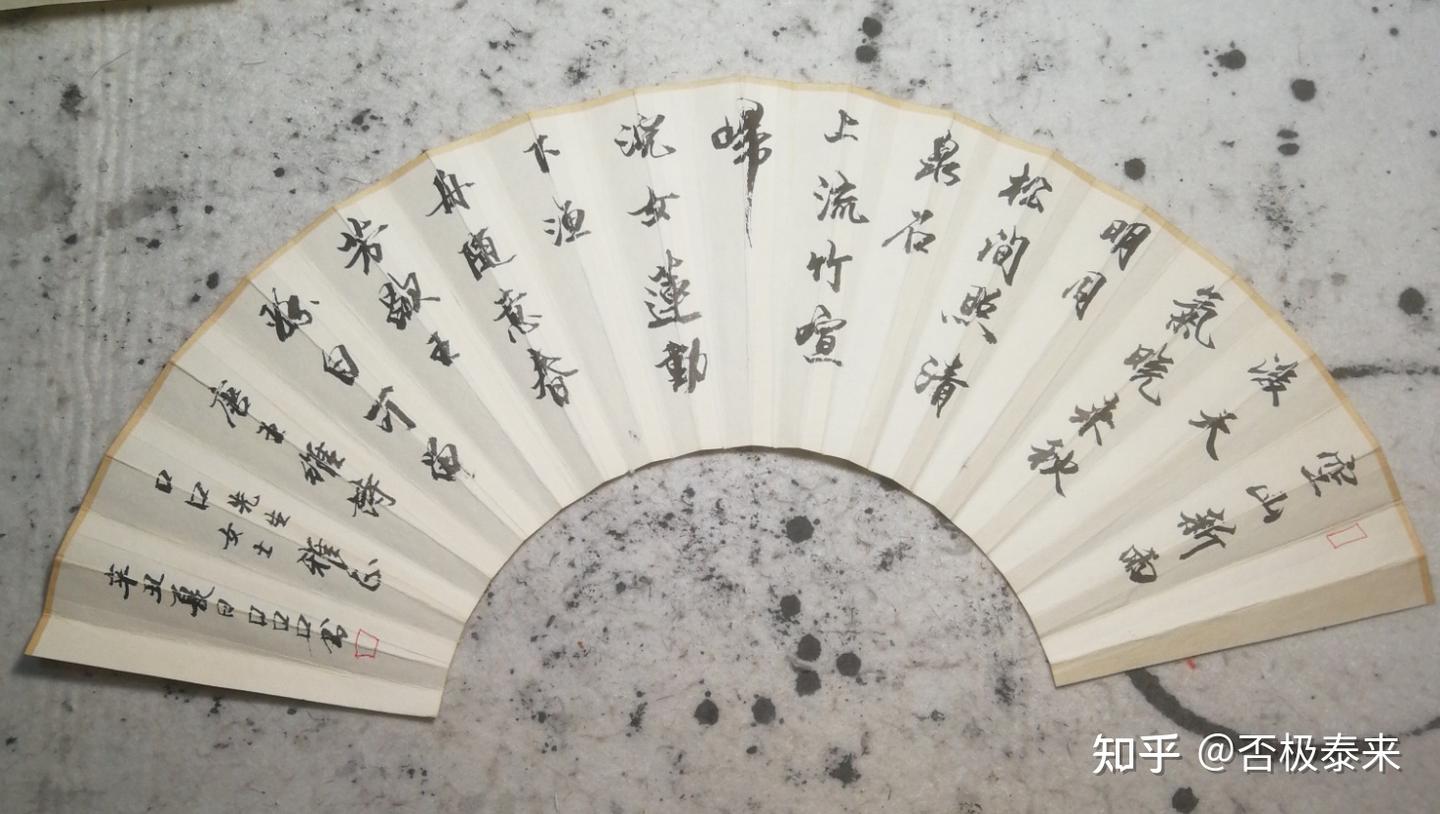 空山新雨
後天
氣晚来秋
明月
松间照清
泉石
上流竹喧
歸
浣女蓮動
下渔
舟随意春
芳歇王
孫自可留
唐王維詩
口口先生女士雅正
辛丑夏日口口口书
知乎 @否极泰来